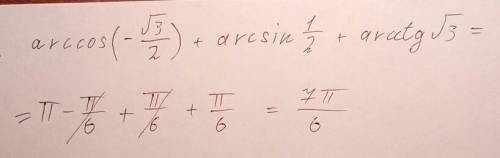 arccos(-√3/2) + arcsin 1/2 + arcctg √3 =
= π - π/6 + π/6 + π/6 = 7π/6